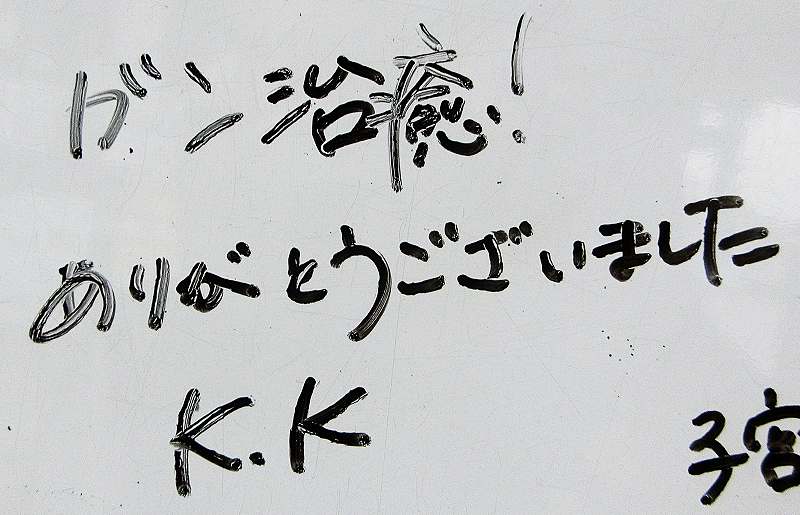 ガン治癒!
ありがとうございました
K.K
子宮